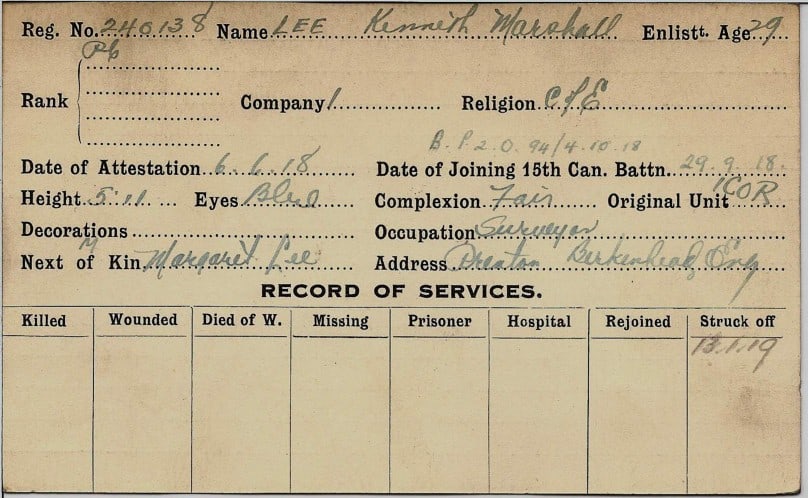 Reg. No. 240138 Name LEE Kenneth Marshall Enlistt. Age 29
Pte
Rank Company 1 Religion C of E
B.P. 2.0. 94/4.10.18
Date of Attestation 6.6.18 Date of Joining 15th Can. Battn. 29.9.18.
Height 5'11 Eyes Blue Complexion Fair Original Unit 1COR
Decorations Occupation Surveyor
M
Next of Kin Margaret Lee Address Prenton Birkenhead, Eng
RECORD OF SERVICES.
Killed Wounded Died of W. Missing Prisoner Hospital Rejoined Struck off
13.1.19